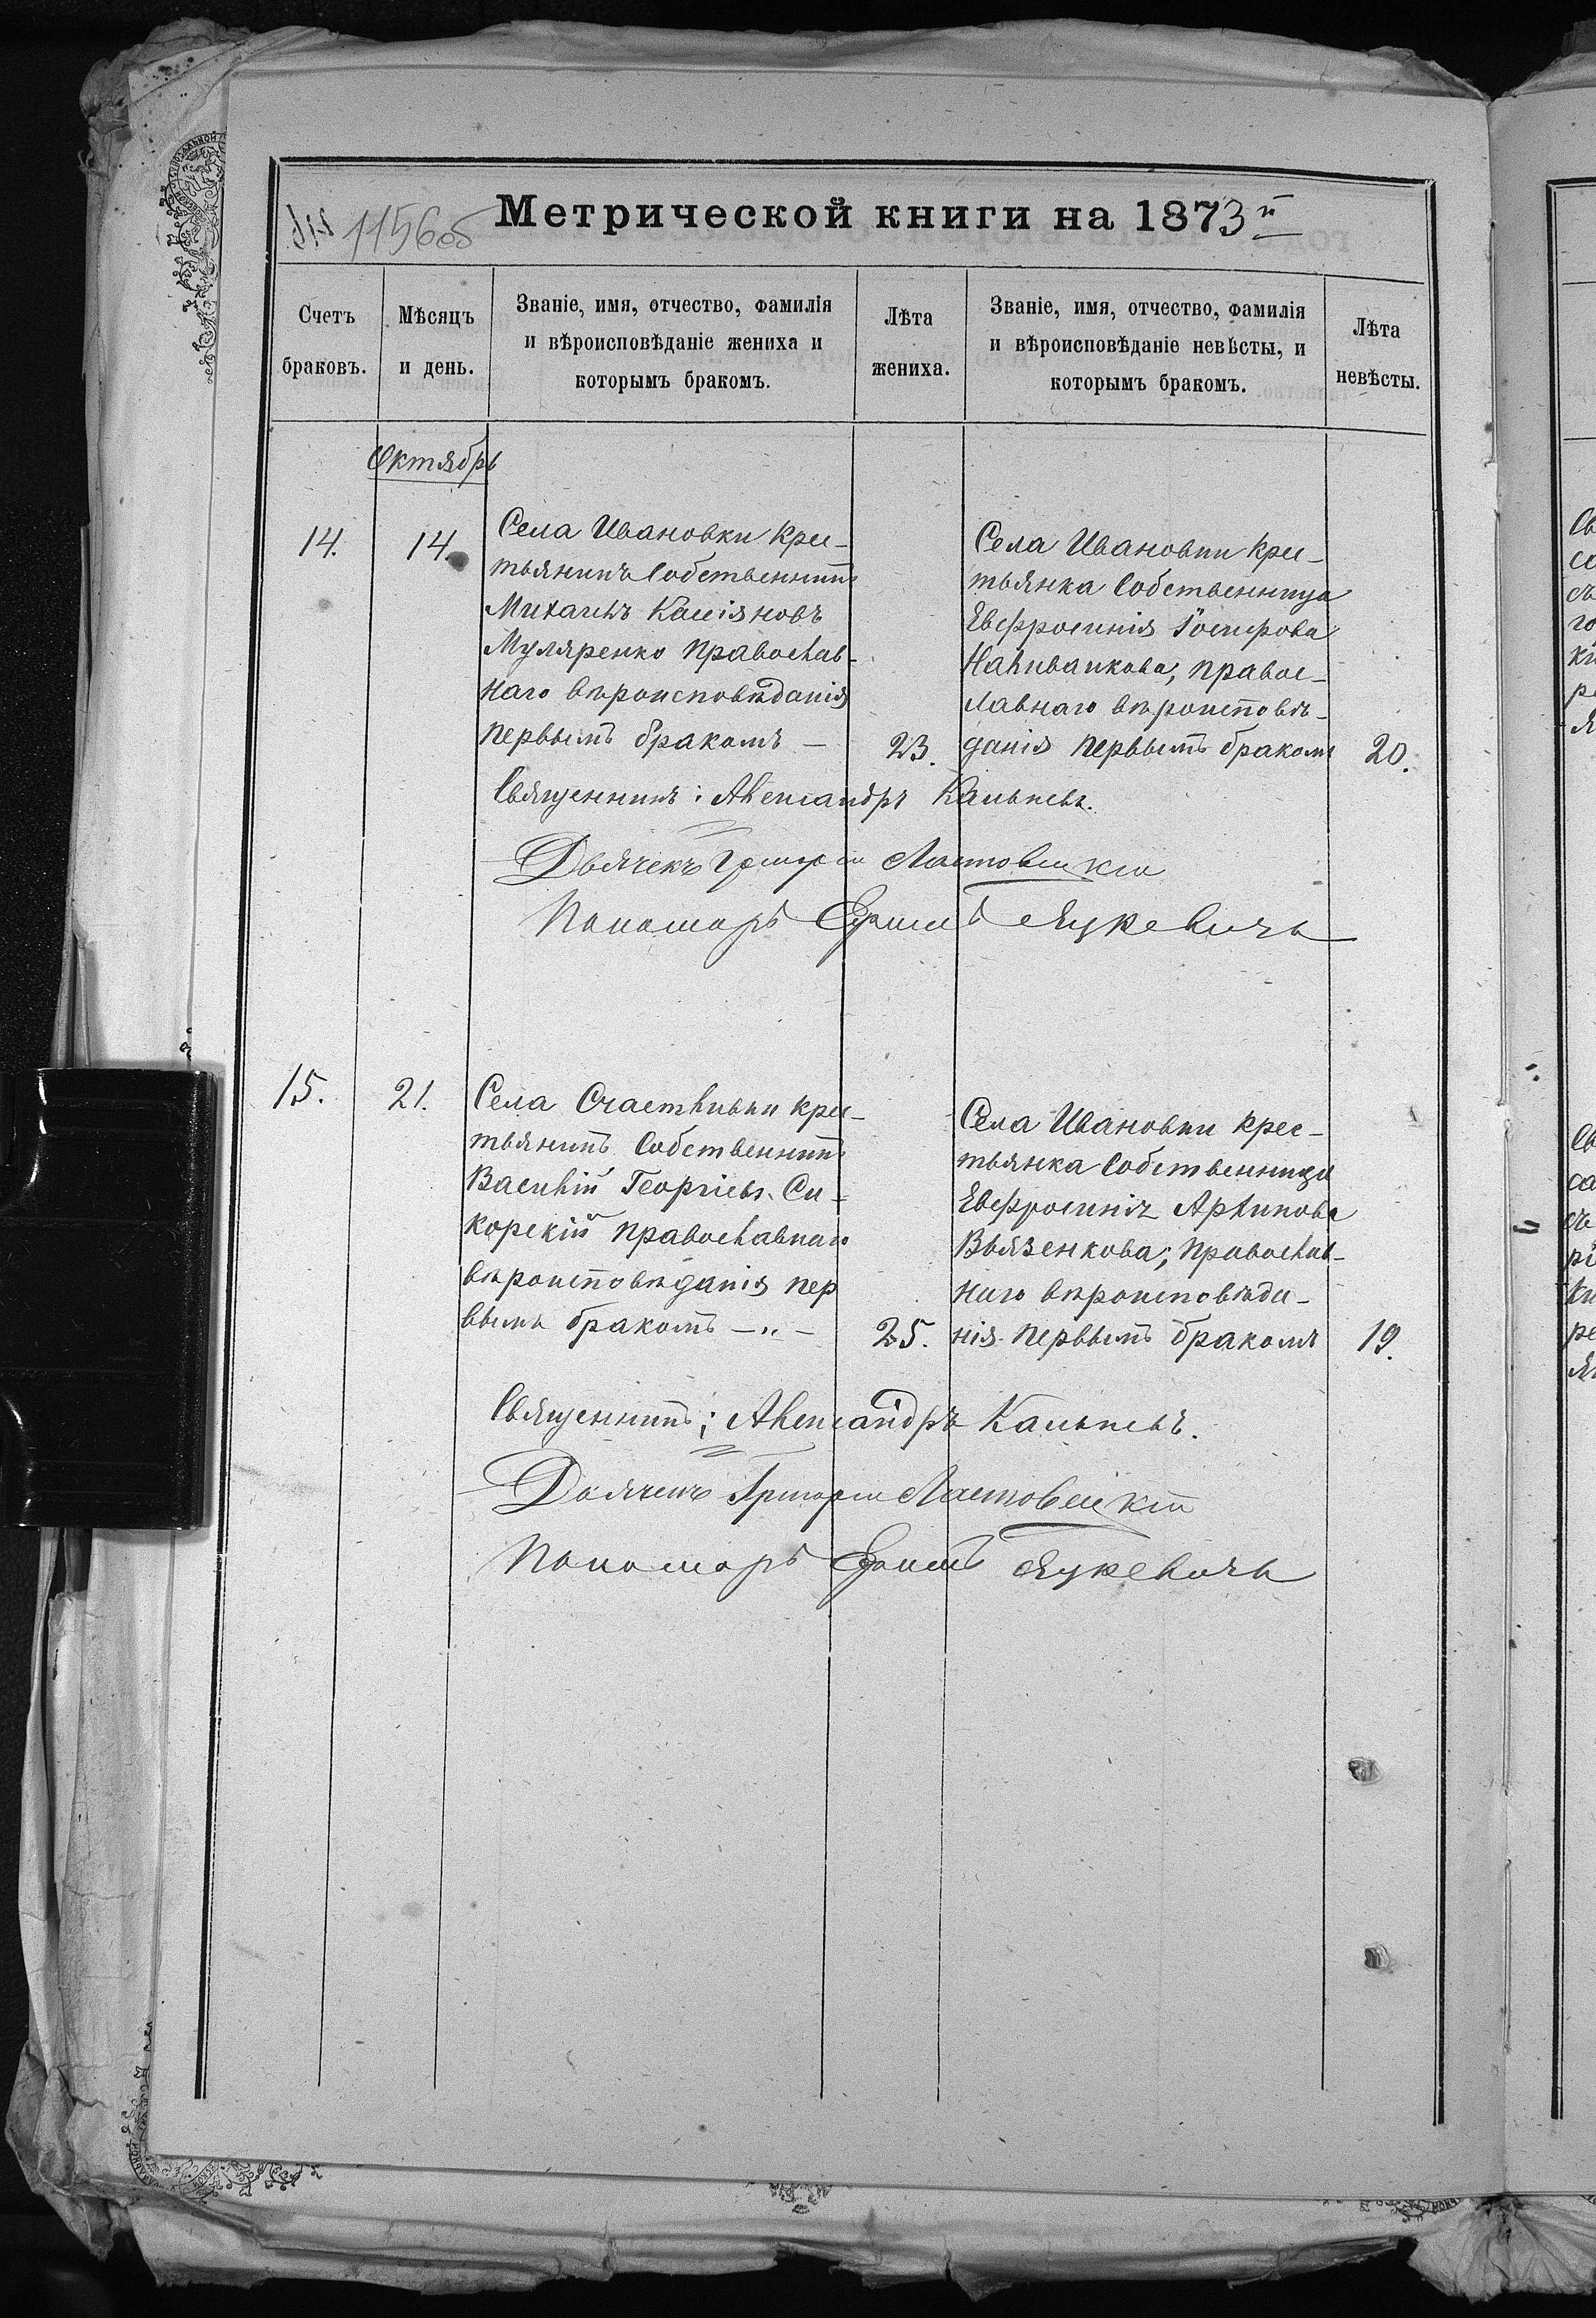 1156об
Метрической книги на 1873й
Счетъ браковъ.
Мѣсяцъ и день.
Званіе, имя, отчество, фамилія и вѣроисповѣданіе жениха и которымъ бракомъ.
Лѣта жениха.
Званіе, имя, отчество, фамилія и вѣроисповѣданіе невѣсты, и которымъ бракомъ.
Лѣта невѣсты.
Октябрь
14.
14.
Села Ивановки крес-
тьянинъ Собственникъ
Михаилъ Касіяновъ
Муляренко Православ-
наго вѣроисповѣданія
первымъ бракомъ —
23.
Села Ивановки крес-
тьянка Собственница
Евфросинія Іосифова
Наливайкова, правос-
лавнаго вѣроисповѣ-
данія первымъ бракомъ
20.
Священникъ: Александръ
Дьячекъ Григорій Ластовецкій
Пономарь Яцкевичъ
15.
21.
Села Счастливки крес-
тьянинъ Собственникъ
Василій Георгіевъ Си-
корскій православнаго
вѣроисповѣданія пер
вымъ бракомъ —"—
25.
Села Ивановки крес-
тьянка Собственница
Евфросинія Архипова
Вьязенкова; Православ-
наго вѣроисповѣда-
нія первымъ бракомъ
19.
Священникъ: Александръ
Дьячекъ Григорій Ластовецкій
Пономарь Яцкевичъ